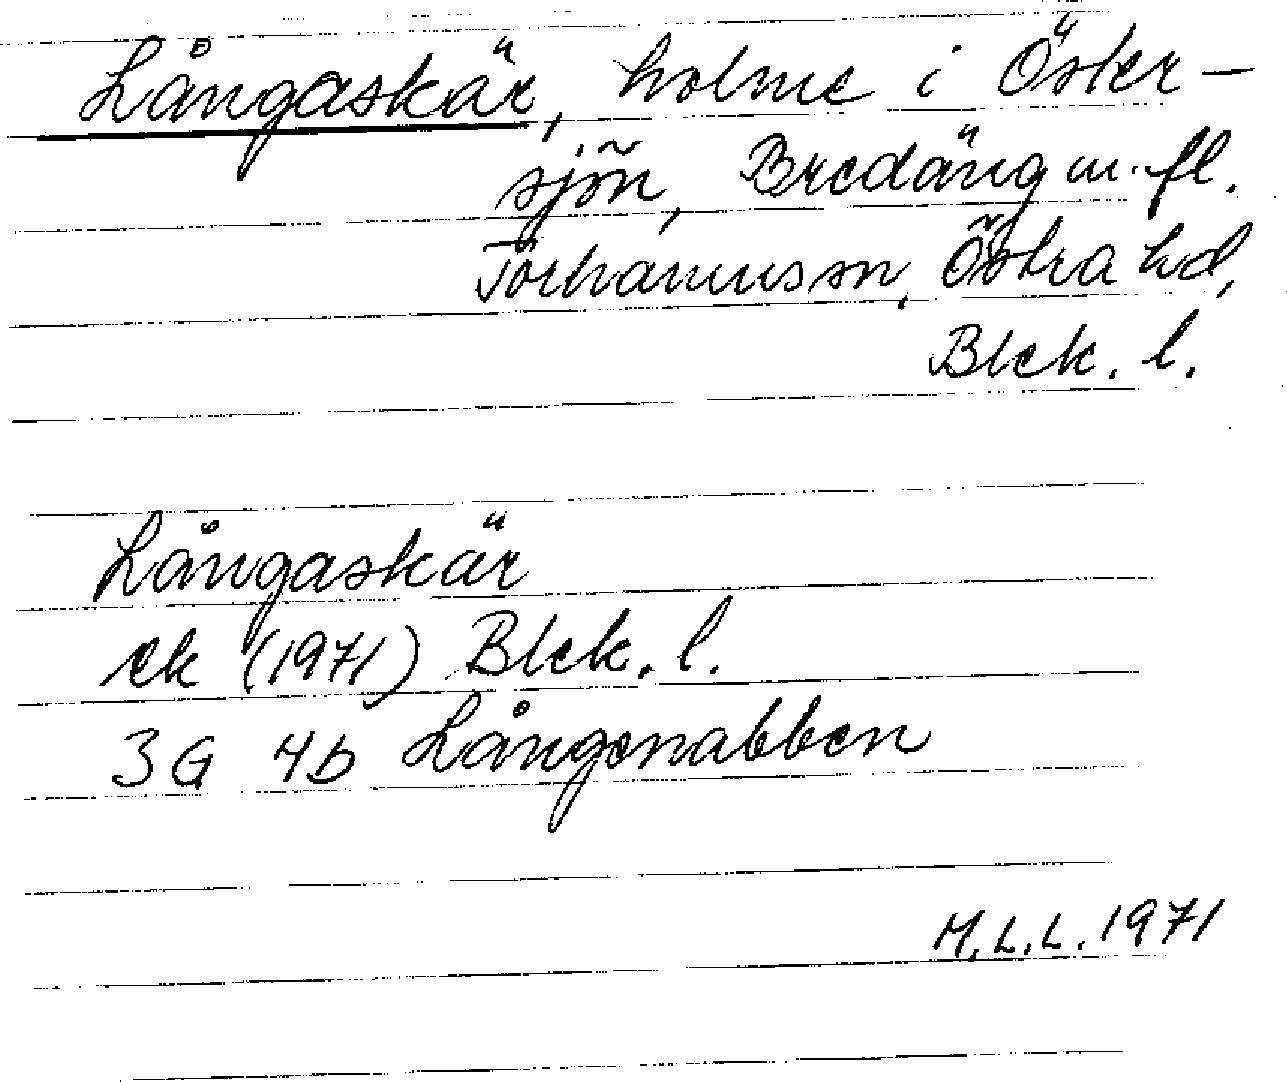 Långaskär, holme i Öster-
sjön, Bredäng m.fl.
Torhamns sn, Östra hd,
Blek. l.
Långaskär
ek (1971) Blek. l.
3G 4b Långenabben
M.L.L. 1971